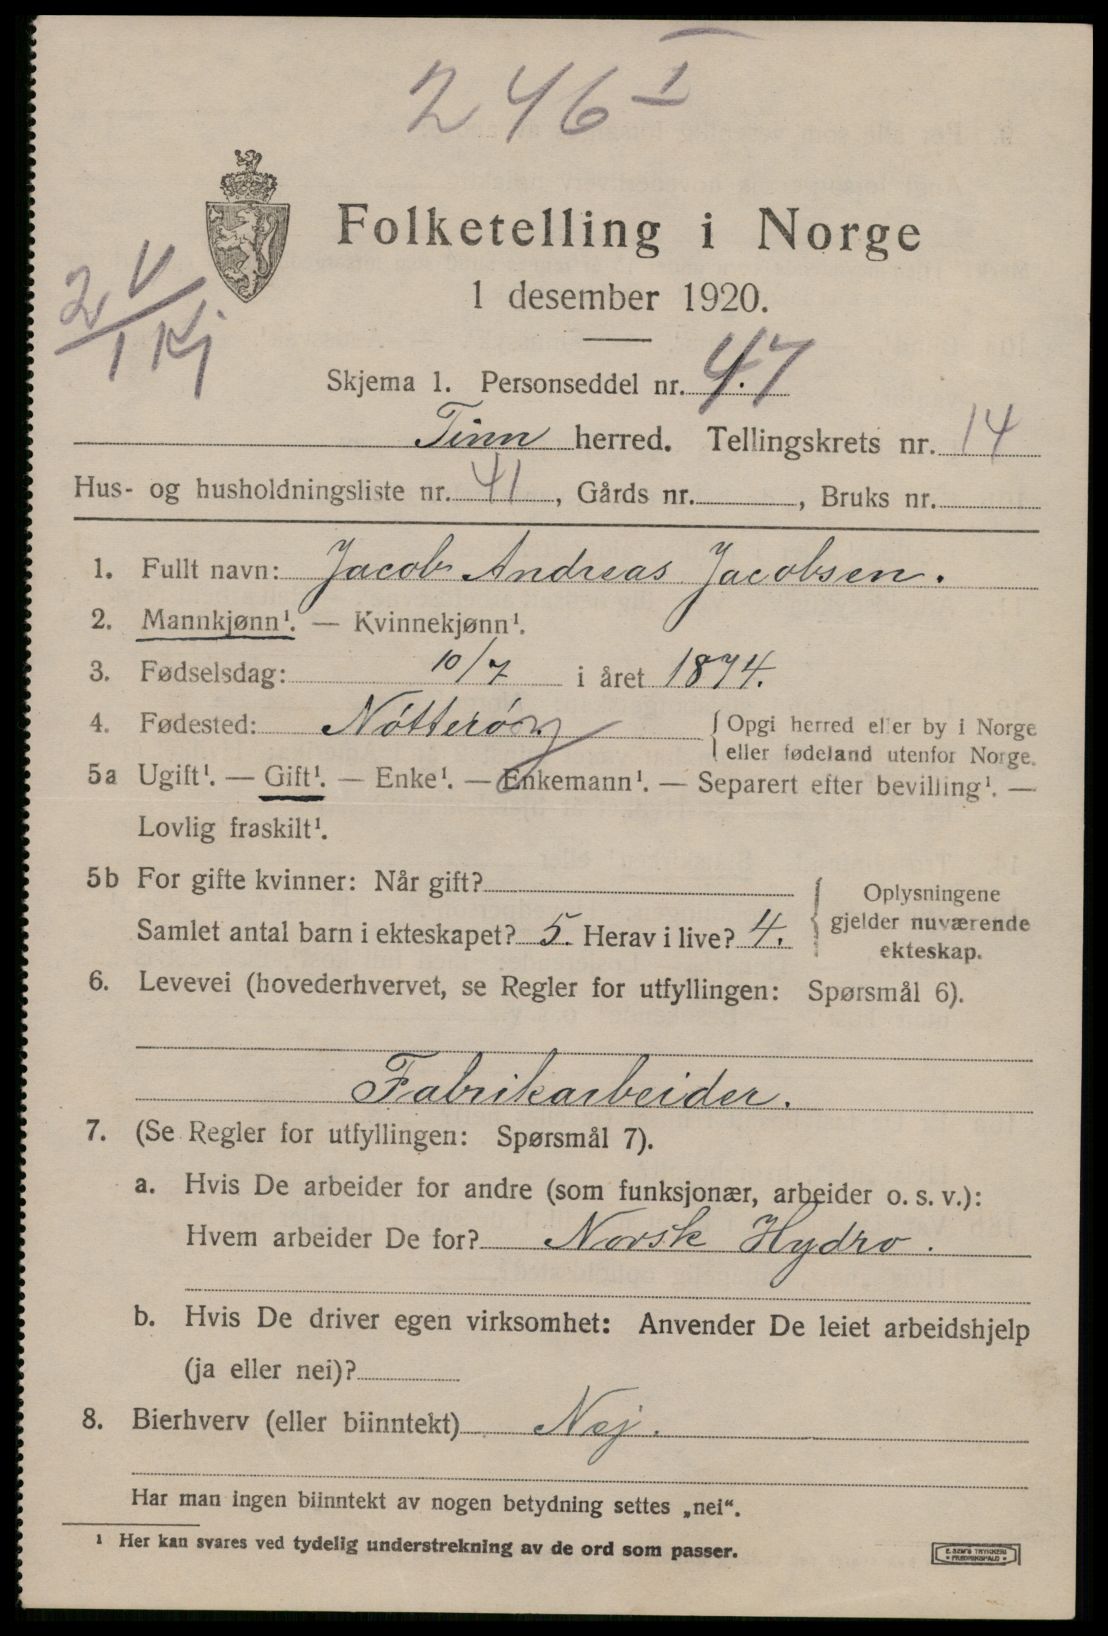 246 I
Folketelling i Norge
1 desember 1920.
2 V
1 Kj
Skjema 1. Personseddel nr. 47
Tinn herred. Tellingskrets nr. 14
Hus- og husholdningsliste nr. 41, Gårds nr. , Bruks nr.
1. Fullt navn: Jacob Andreas Jacobsen.
2. Mannkjønn¹. — Kvinnekjønn¹.
3. Fødselsdag: 10/7 i året 1874.
4. Fødested: Nötterö { Opgi herred eller by i Norge
eller fødeland utenfor Norge.
5a Ugift¹. — Gift¹. — Enke¹. — Enkemann¹. — Separert efter bevilling¹. —
Lovlig fraskilt¹.
5b For gifte kvinner: Når gift?
Samlet antal barn i ekteskapet? 5. Herav i live? 4. { Oplysningene
gjelder nuværende
ekteskap.
6. Levevei (hovederhvervet, se Regler for utfyllingen: Spørsmål 6).
Fabrikarbeider.
7. (Se Regler for utfyllingen: Spørsmål 7).
a. Hvis De arbeider for andre (som funksjonær, arbeider o. s. v.):
Hvem arbeider De for? Norsk Hydro.
b. Hvis De driver egen virksomhet: Anvender De leiet arbeidshjelp
(ja eller nei)?
8. Bierhverv (eller biinntekt) Nej.
Har man ingen biinntekt av nogen betydning settes „nei“.
¹ Her kan svares ved tydelig understrekning av de ord som passer.
E. SEM'S TRYKKERI
• FREDRIKSHALD •